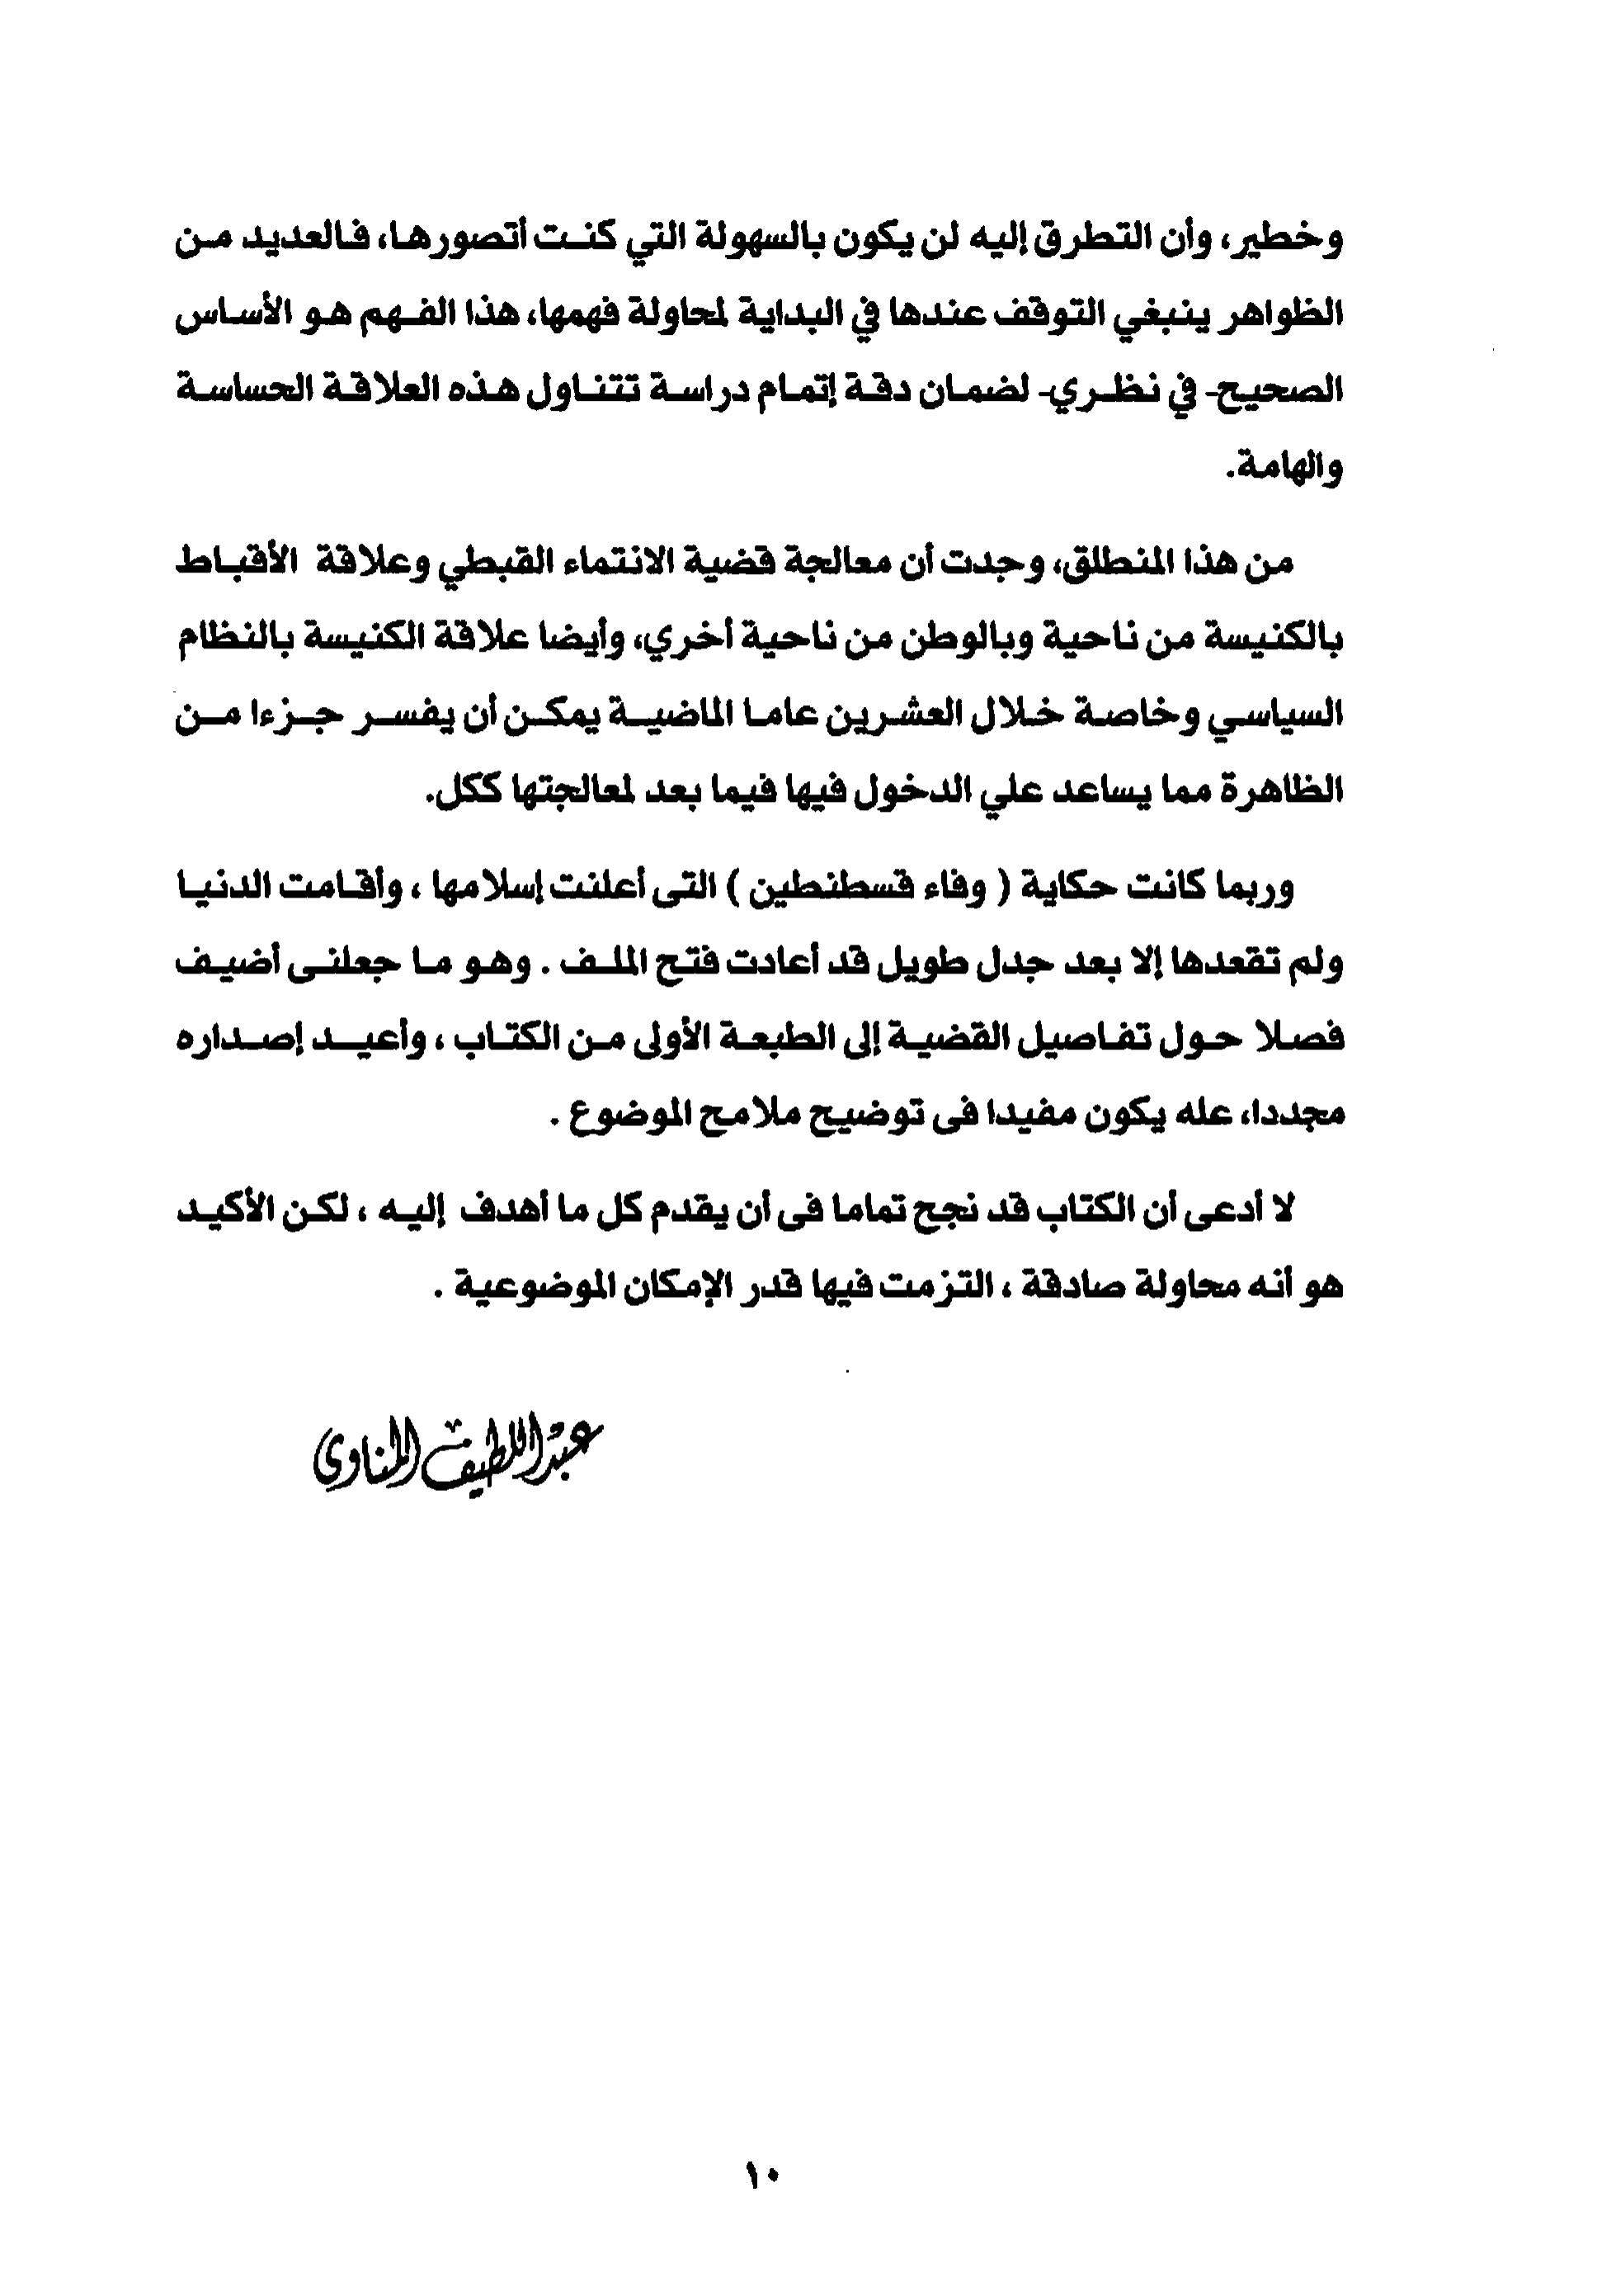 وخطير، وأن التطرق إليه لن يكون بالسهولة التي كنت أتصورها، فالعديد من
الظواهر ينبغي التوقف عندها في البداية لمحاولة فهمها، هذا الفهم هو الأساس
الصحيح- في نظري- لضمان دقة إتمام دراسة تتناول هذه العلاقة الحساسة
والهامة.
من هذا المنطلق، وجدت أن معالجة قضية الانتماء القبطي وعلاقة الأقباط
بالكنيسة من ناحية وبالوطن من ناحية أخري، وأيضا علاقة الكنيسة بالنظام
السياسي وخاصة خلال العشرين عاما الماضية يمكن أن يفسر جزءا من
الظاهرة مما يساعد علي الدخول فيها فيما بعد لمعالجتها ككل.
وربما كانت حكاية ( وفاء قسطنطين ) التى أعلنت إسلامها ، وأقامت الدنيا
ولم تقعدها إلا بعد جدل طويل قد أعادت فتح الملف . وهو ما جعلنى أضيف
فصلا حول تفاصيل القضية إلى الطبعة الأولى من الكتاب ، وأعيد إصداره
مجددا، عله يكون مفيدا فى توضيح ملامح الموضوع .
لا أدعى أن الكتاب قد نجح تماما فى أن يقدم كل ما أهدف إليه ، لكن الأكيد
هو أنه محاولة صادقة ، التزمت فيها قدر الإمكان الموضوعية .
عبد اللطيف المناوى
١٠